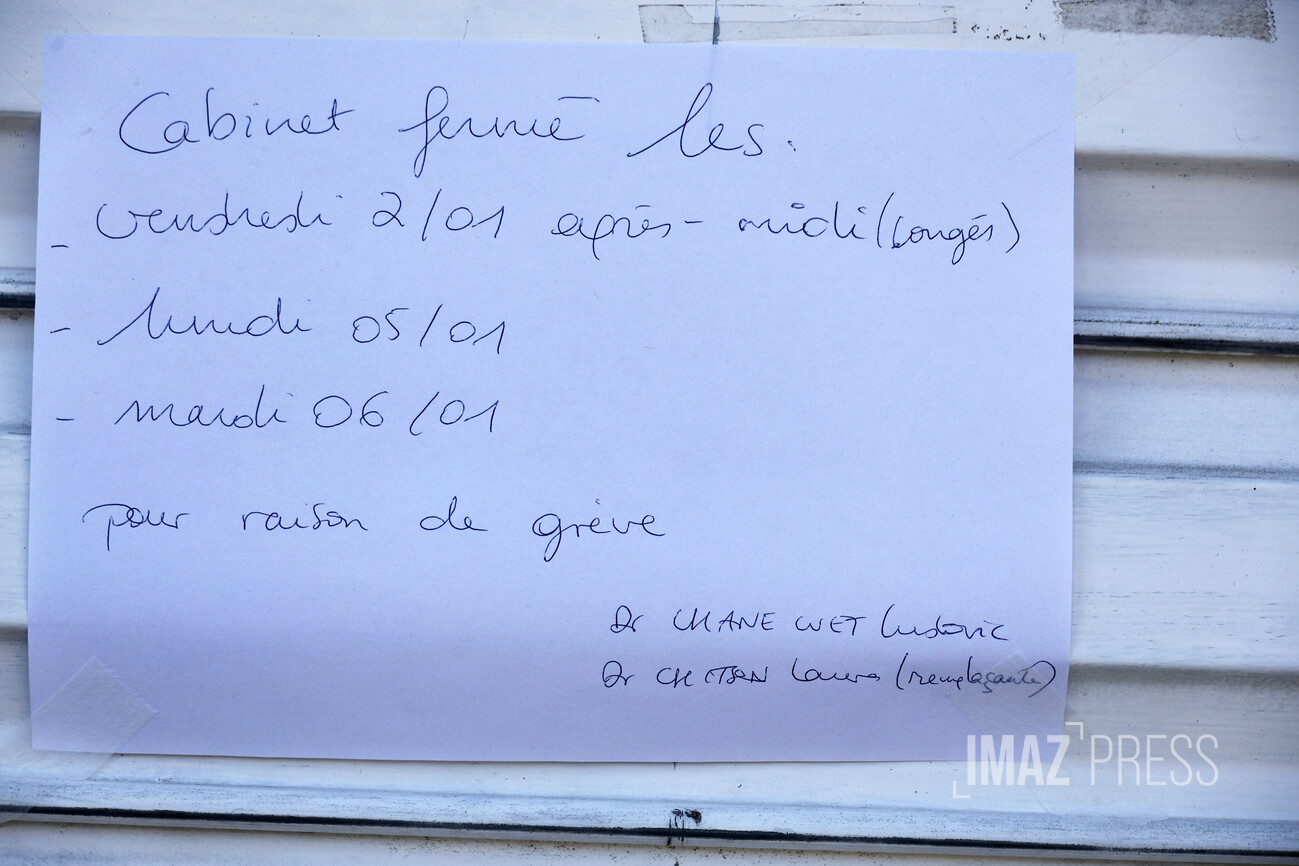 Cabinet fermé les.
- vendredi 2/01 après-midi (congés)
- lundi 05/01
- mardi 06/01
pour raison de grève
Dr CHANE WET Ludovic
Dr Laura (remplaçante)
IMAZ PRESS